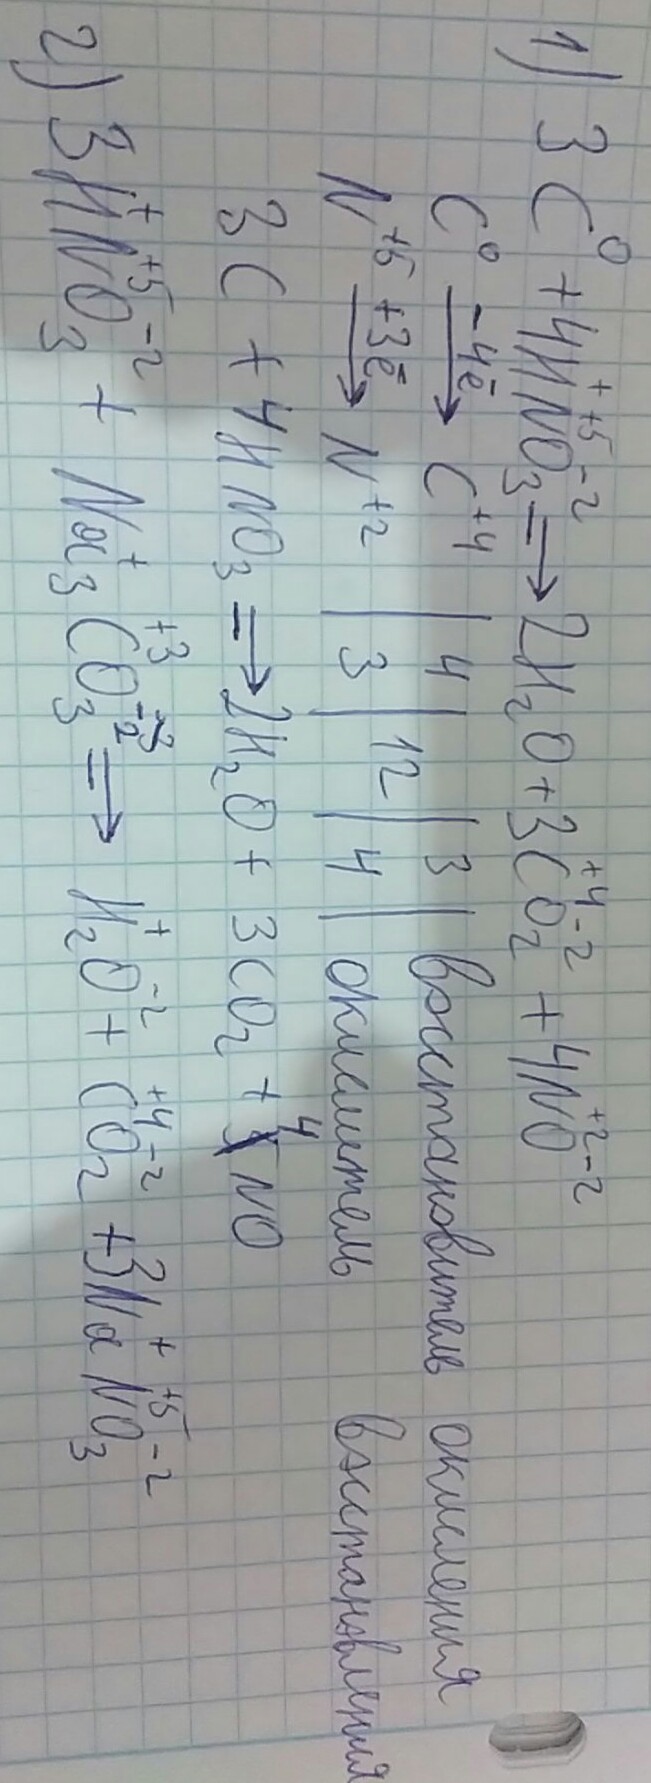 1) 3C⁰ + 4H⁺N⁺⁵O₃⁻² ⇒ 2H₂O + 3C⁺⁴O₂⁻² + 4N⁺²O⁻²
C⁰ –4ē → C⁺⁴ | 4 | 12 | 3 | восстановитель окисления
N⁺⁵ +3ē → N⁺² | 3 | | 4 | окислитель восстановления
3C + 4HNO₃ ⇒ 2H₂O + 3CO₂ + 4NO
2) 3H⁺N⁺⁵O₃⁻² + Na₃⁺C⁺³O₃⁻² ⇒ H₂⁺O⁻² + C⁺⁴O₂⁻² + 3Na⁺N⁺⁵O₃⁻²